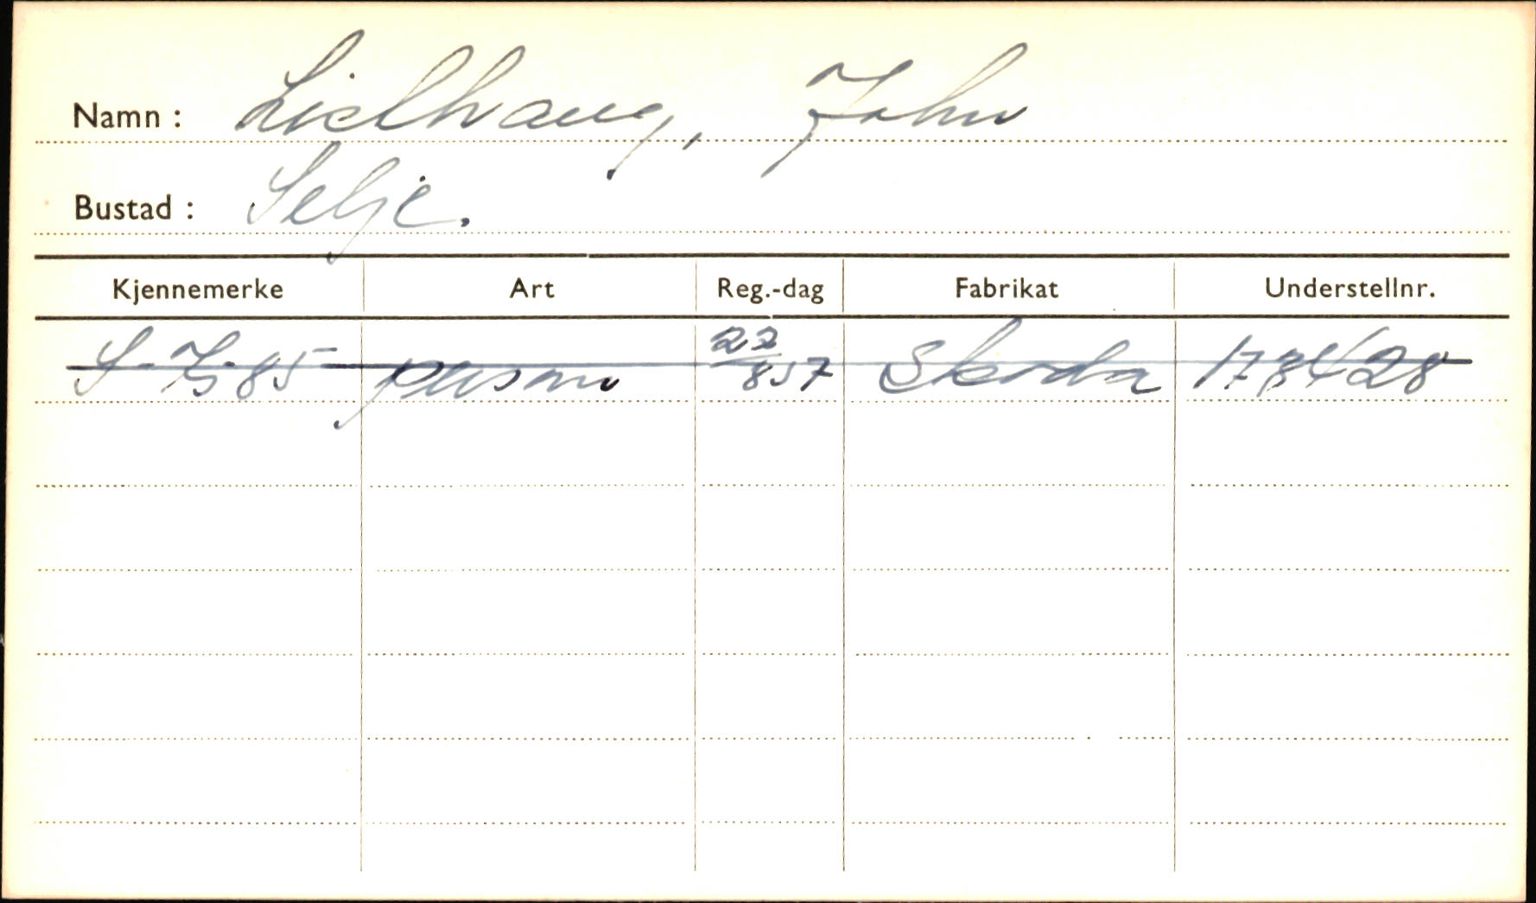 Namn : Lielhaug, John
Bustad : Selje.
Kjennemerke Art Reg.-dag Fabrikat Understellnr.
person 22/8 57 Skoda